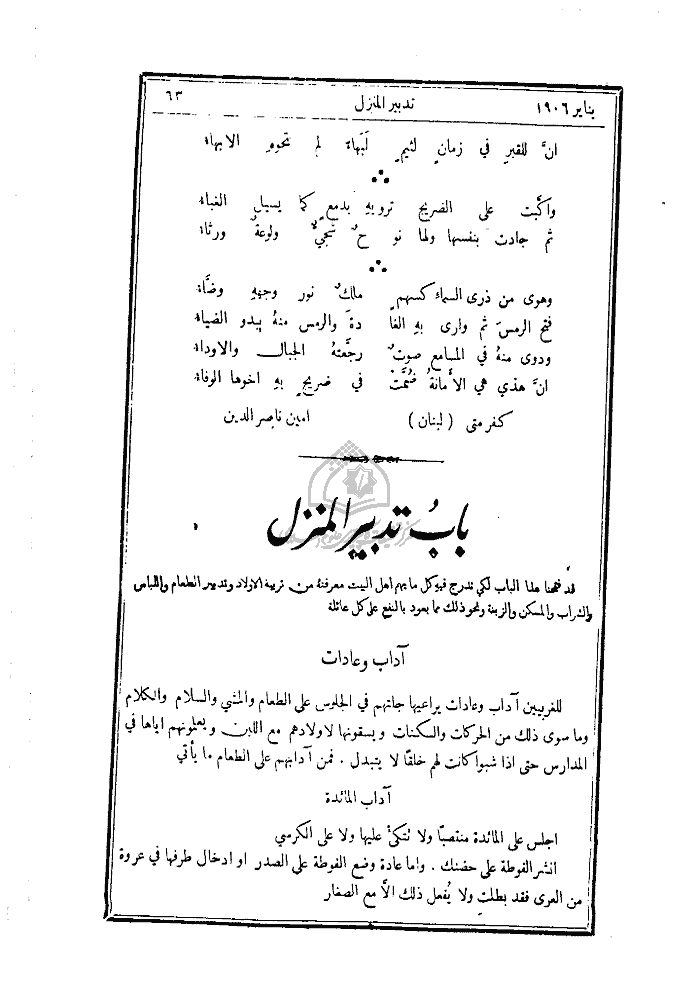 يناير ١٩٠٦ تدبير المنزل ٦٣
انَّ للقبرِ في زمانٍ لئيمٍ لَبَهاءً لم تحوِهِ الابهاء
واكبّت على الضريح تروِّيهِ بدمعٍ كما يسيل الغباء
ثم جادت بنفسها ولها نوحٌ شجيٌّ ولوعةٌ ورثاء
وهوى من ذرى السماء كسهمٍ ملكٌ نور وجههِ وضَّاء
فتح الرمس ثم وارى بهِ الغادةَ والرمس منهُ يبدو الضياء
ودوى منهُ في المسامع صوتٌ رجَّعتهُ الجبال والاوداء
انَّ هذي هي الأمانةُ ضُمَّتْ في ضريحٍ بهِ اخوها الوفاء
كفرمتى (لبنان) امين ناصر الدين
بابُ تدبير المنزل
قد فتحنا هذا الباب لكي ندرج فيهِ كل ما يهم اهل البيت معرفتهُ من تربية الاولاد وتدبير الطعام واللباس
والشراب والمسكن والزينة ونحو ذلك مما يعود بالنفع على كل عائلة
آداب وعادات
للغربيين آداب وعادات يراعيها جلتهم في الجلوس على الطعام والمشي والسلام والكلام
وما سوى ذلك من الحركات والسكنات ويسقونها لاولادهم مع اللبن ويعلمونهم اياها في
المدارس حتى اذا شبوا كانت لهم خلقًا لا يتبدل . فمن آدابهم على الطعام ما يأتي
آداب المائدة
اجلس على المائدة منتصبًا ولا تتكئ عليها ولا على الكرسي
انشر الفوطة على حضنك . واما عادة وضع الفوطة على الصدر او ادخال طرفها في عروة
من العرى فقد بطلت ولا يُفعل ذلك الاَّ مع الصغار